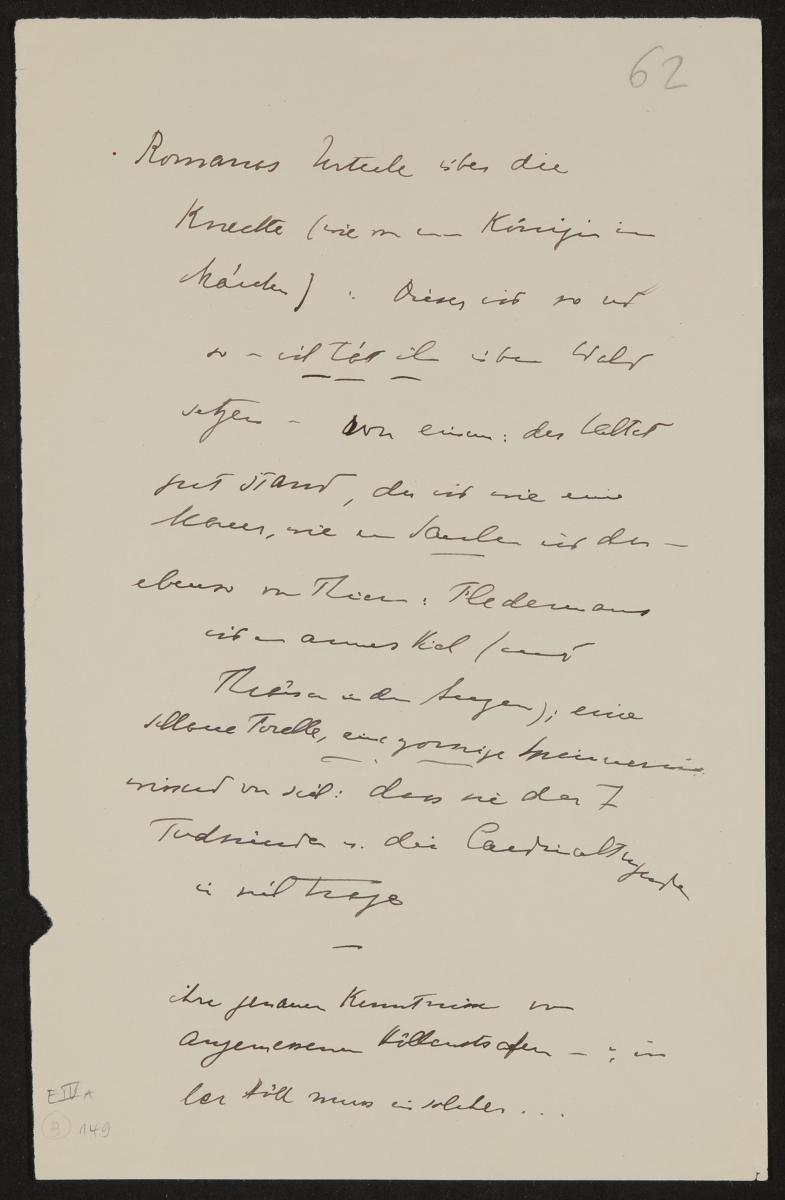 62
Romanas Urteile über die
Knechte (wie von einer Königin im
Märchen) : Dieser ist so und
so – ich tät ihn über Wald
setzen – von einem: der
gut stand, der ist wie eine
Mauer, wie ein ist der –
ebenso von Thieren: Fledermaus
ist ein armes Vieh (
in den Augen); eine
schlaue Forelle, eine zornige Spinnerin
wissend von sich: dass sie der 7
Todsünden u. die Cardinaltugenden
in sich trage
—
ihre genauen Kenntnisse von
angemessenen Höllenstrafen – : in
der Höll muss ein solcher ...
E IV A
3 149